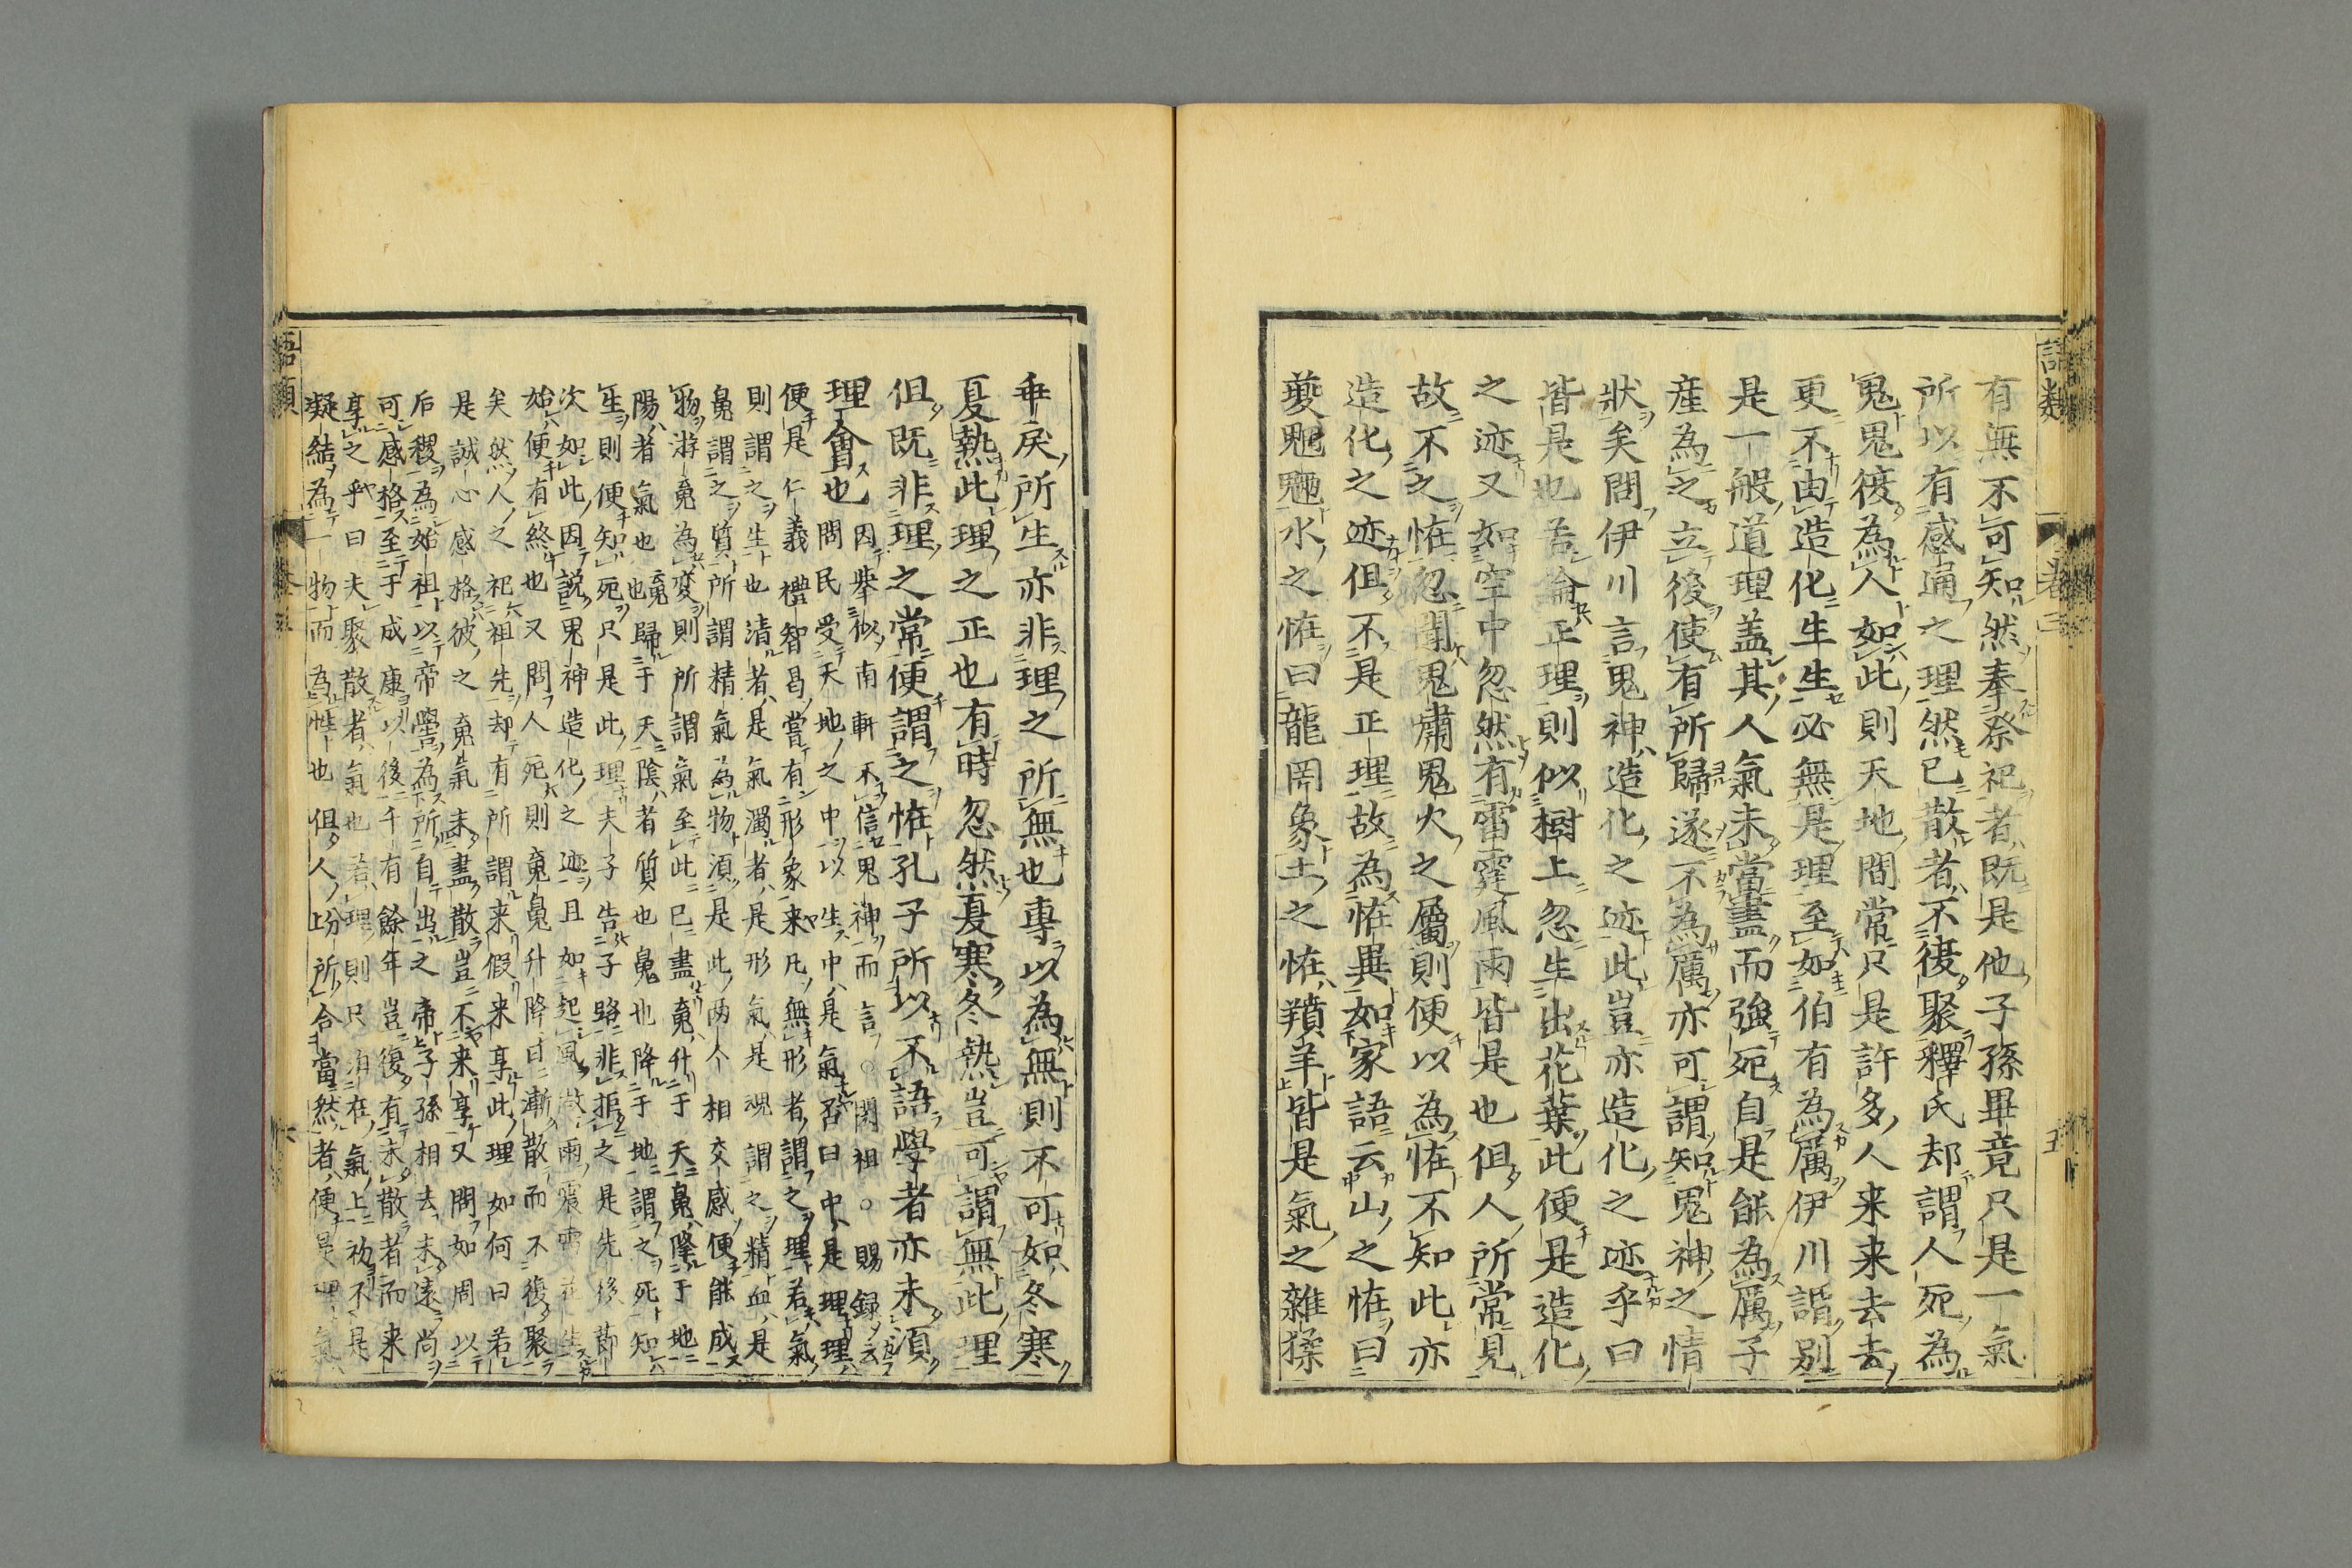 語類
卷三
五
有無不可知然奉祭祀者既是他子孫畢竟只是一氣
所以有感通之理然已散者不復聚釋氏却謂人死為
鬼鬼復為人如此則天地間常只是許多人来来去去
更不由造化生生必無是理至如伯有為厲伊川謂別
是一般道理盖其人氣未當盡而強死自是能為厲子
産為之立後使有所歸遂不為厲亦可謂知鬼神之情
狀矣問伊川言鬼神造化之迹此豈亦造化之迹乎曰
皆是也若論正理則似樹上忽生出花葉此便是造化
之迹又如空中忽然有雷霆風雨皆是也但人所常見
故不之恠忽聞鬼嘯鬼火之屬則便以為恠不知此亦
造化之迹但不是正理故為恠異如家語云山之恠曰
夔魍魎水之恠曰龍罔象土之恠羵羊皆是氣之雜揉
乖戾所生亦非理之所無也專以為無則不可如冬寒
夏熱此理之正也有時忽然夏寒冬熱豈可謂無此理
但既非理之常便謂之恠孔子所以不語學者亦未須
理會也
因舉似南軒不信鬼神而言○閎祖○賜録云
問民受天地之中以生中是氣否曰中是理理
便是仁義禮智曷嘗有形象来凡無形者謂之理若氣
則謂之生也清者是氣濁者是形氣是魂謂之精血是
魄謂之質所謂精氣為物須是此两个相交感便能成
物游䰟為変則所謂氣至此已盡䰟升于天魄降于地
陽者氣也䰟也歸于天陰者質也魄也降于地謂之死知
生則便知死只是此理夫子告子路非拒之是先後節
次如此因説鬼神造化之迹且如起風做雨震雷花生
始便有終也又問人死則䰟魄升降日漸散而不復聚
矣然人之祀祖先却有所謂来假来享此理如何曰若
是誠心感格彼之䰟氣未盡散豈不来享又問如周以
后稷為始祖以帝嚳為所自出之帝子孫相去未遠尚
可感格至于成康以後千有餘年豈復有未散者而来
享之乎曰夫聚散者氣也若理則只泊在氣上初不是
凝結為一物而為性也但人分上所合當然者便是理氣
語類